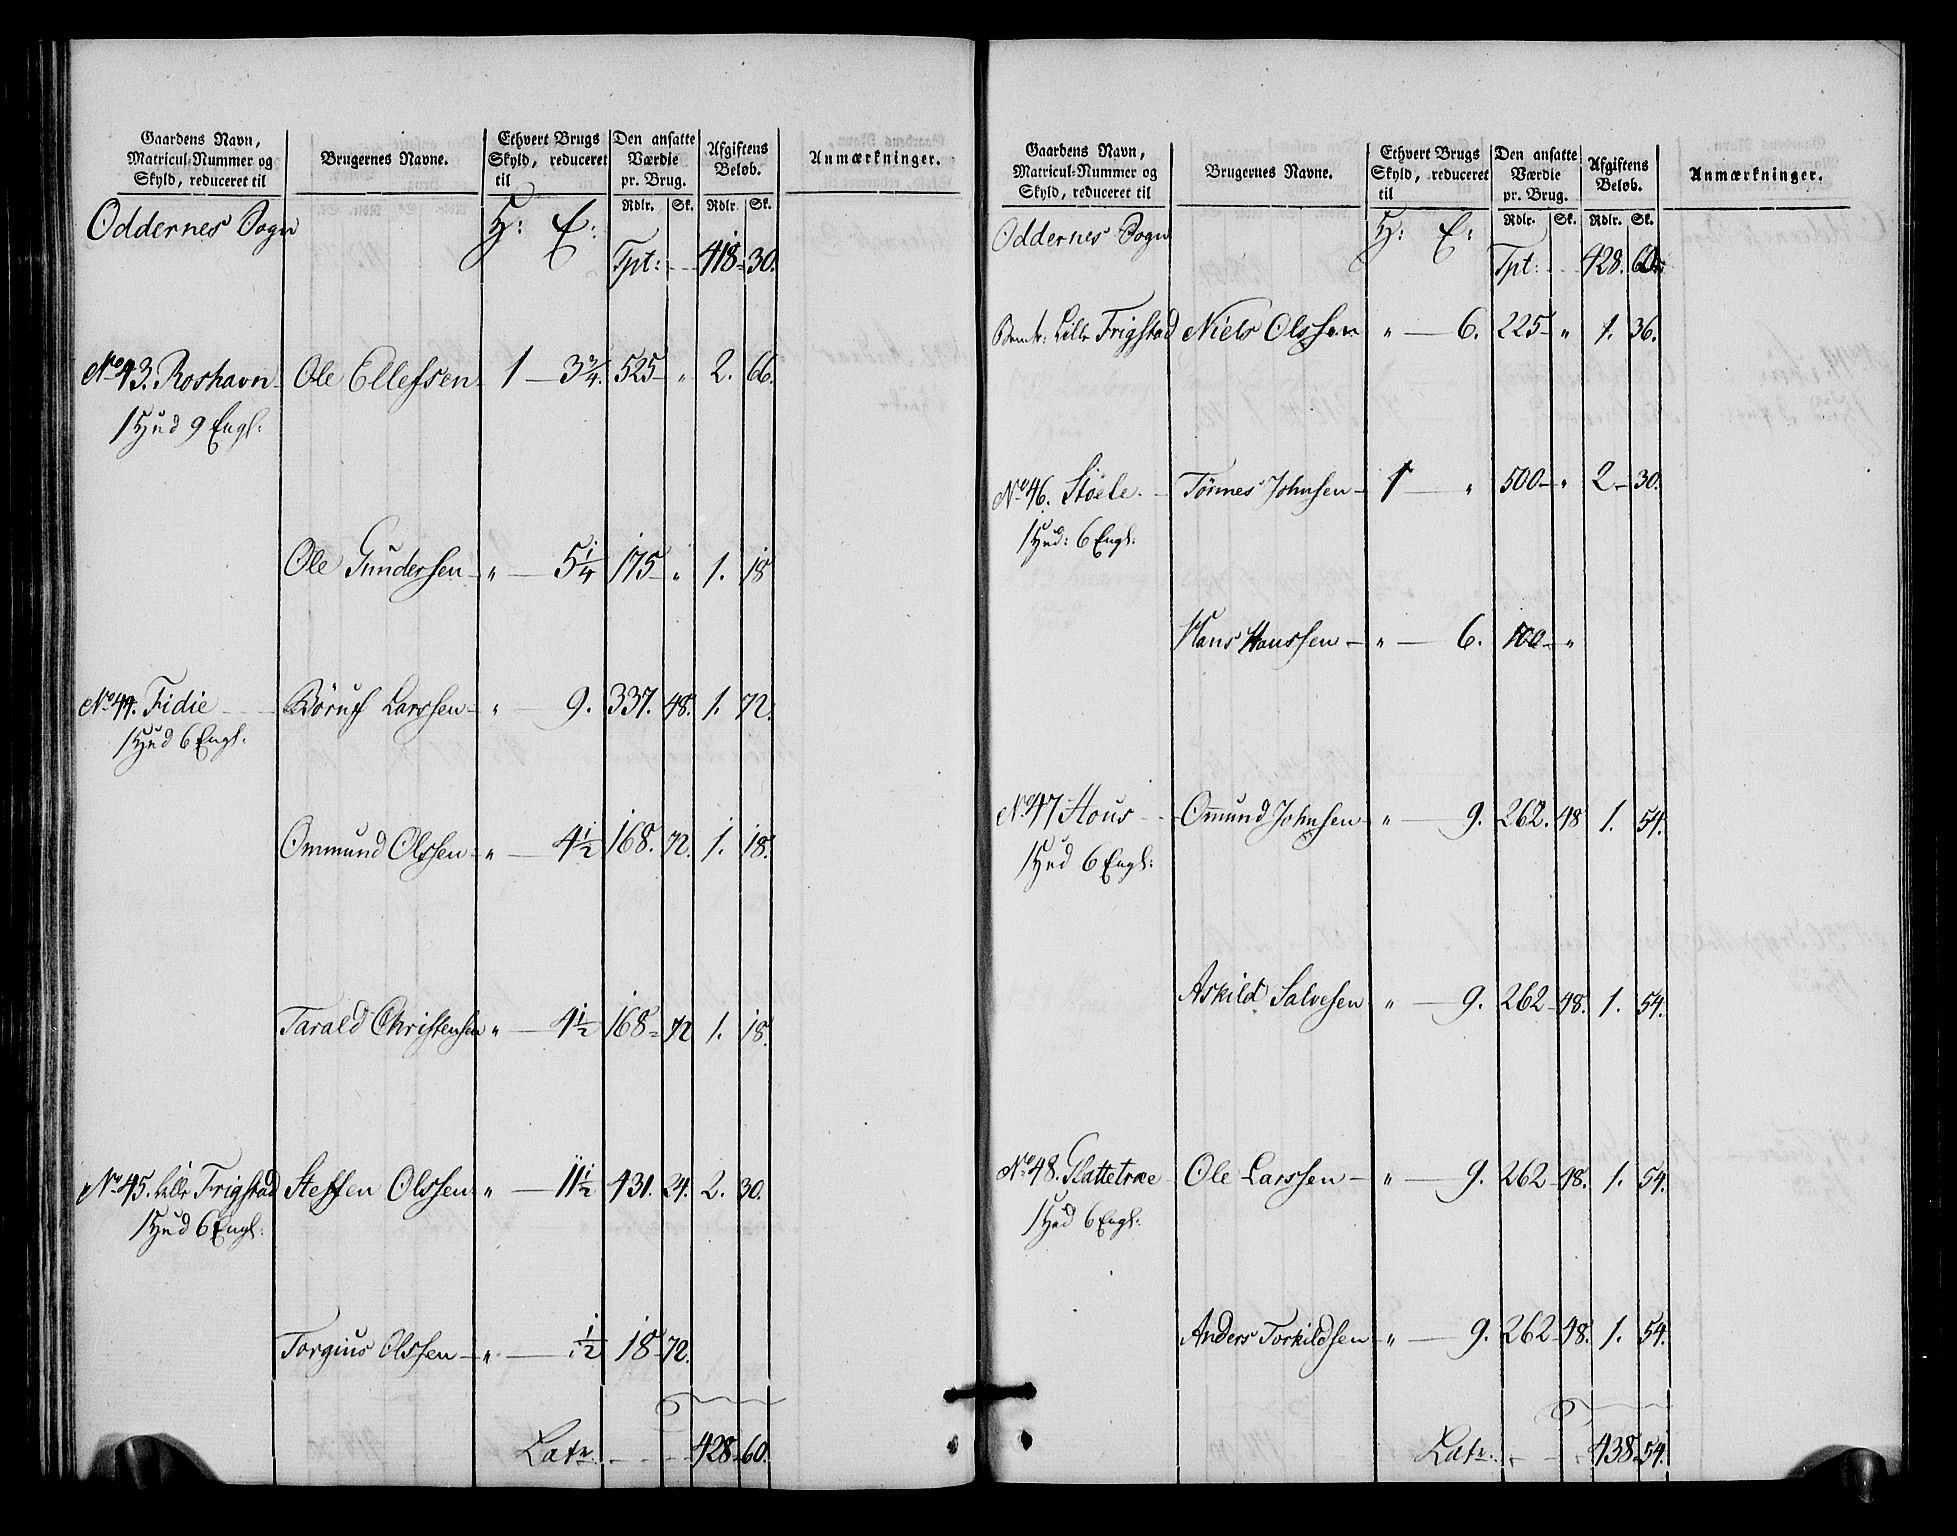 Gaardens Navn, Matricul-Nummer og Skyld, reduceret til | Brugernes Navne. | Ethvert Brugs Skyld, reduceret til | Den ansatte Værdie pr. Brug. Rdlr. Sk. | Afgiftens Beløb. Rdlr. Sk. | Anmærkninger.
Oddernes Sogn H: E:
Tpt: 418. 30.
No 43. Roshavn Ole Ellefsen 1 — 3 3/4. 525 " 2. 66.
1 Hud 9 Engl:
Ole Gundersen " — 5 1/4 175 " 1. 18
No 44. Fidie Böruf Larssen " — 9. 337. 48. 1. 72.
1 Hud 6 Engl:
Ommund Olssen " — 4 1/2 168. 72. 1. 18.
Tarald Christensen " — 4 1/2 168 72 1. 18.
No 45. Lille Frigstad Steffen Olssen " — 11 1/2 431. 24. 2. 30.
1 Hud 6 Engl:
Torgius Olssen " — 1/2 18 72.
Latr: 428 60.
Gaardens Navn, Matricul-Nummer og Skyld, reduceret til | Brugernes Navne. | Ethvert Brugs Skyld, reduceret til | Den ansatte Værdie pr. Brug. Rdlr. Sk. | Afgiftens Beløb. Rdlr. Sk. | Anmærkninger.
Oddernes Sogn H: E:
Tpt: 428. 60.
Lille Frigstad Niels Olssen " — 6. 225 " 1. 36.
No 46. Støele Tönnes Johnsen 1 — " 500 " 2 30.
1 Hud: 6 Engl:
Hans Hanssen " — 6. 100 "
No 47 Hous Omund Johnsen " — 9. 262. 48 1. 54.
1 Hud 6 Engl:
Askild Salvesen " — 9. 262 48. 1. 54.
No 48. Glattetræe Ole Larssen " — 9. 262 48. 1. 54.
1 Hud 6 Engl:
Anders Torkildsen " — 9. 262 48. 1. 54.
Latr: 438 54.